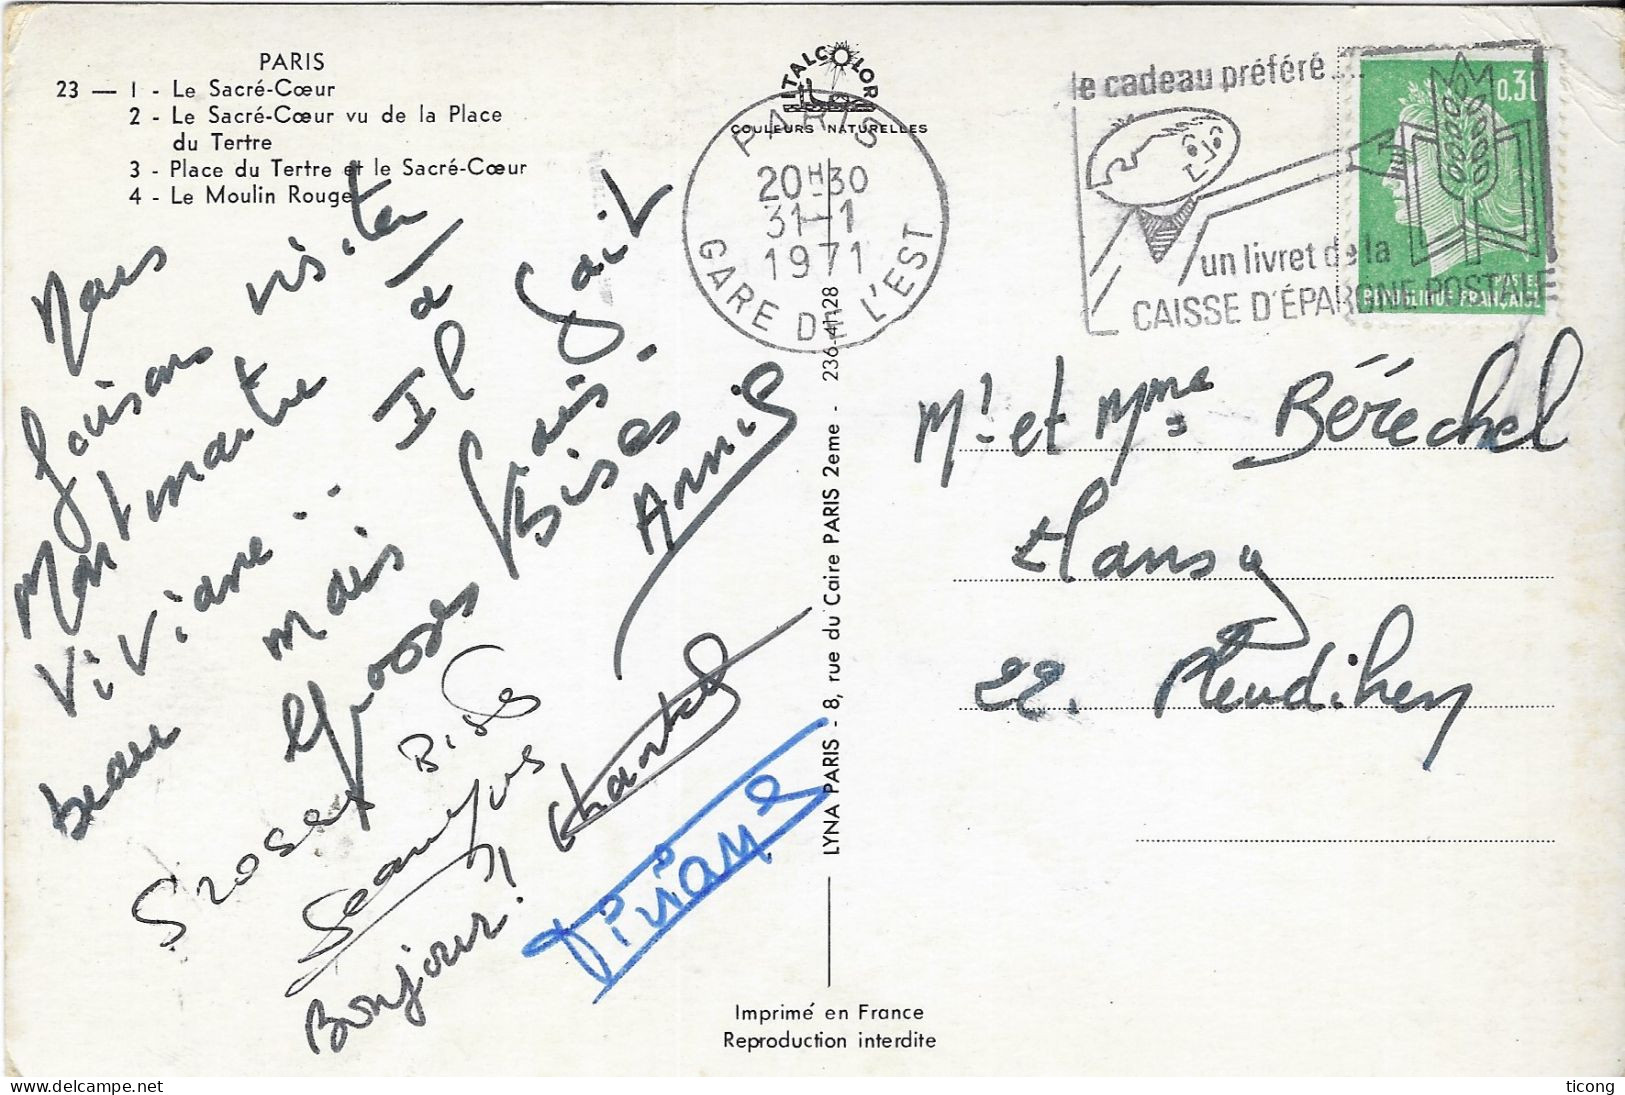 PARIS
23 — 1 - Le Sacré-Cœur
2 - Le Sacré-Cœur vu de la Place
du Tertre
3 - Place du Tertre et le Sacré-Cœur
4 - Le Moulin Rouge
Nous
faisons visiter
Montmartre à
Viviane. Il fait
beau mais frais.
Grosses Bises
Annie
Grosses Bises
Jean-Yves
Bonjour! Chantal
Viviane
ITALCOLOR
COULEURS NATURELLES
PARIS
20H30
31-1
1971
GARE DE L'EST
le cadeau préféré....
un livret de la
CAISSE D'ÉPARGNE POSTALE
0,30
POSTES
REPUBLIQUE FRANÇAISE
LYNA PARIS - 8, rue du Caire PARIS 2eme - 236-41-28
Mr et Mme Béréchel
Lansy
22. Pleudihen
Imprimé en France
Reproduction interdite
delcampe.net
ticong